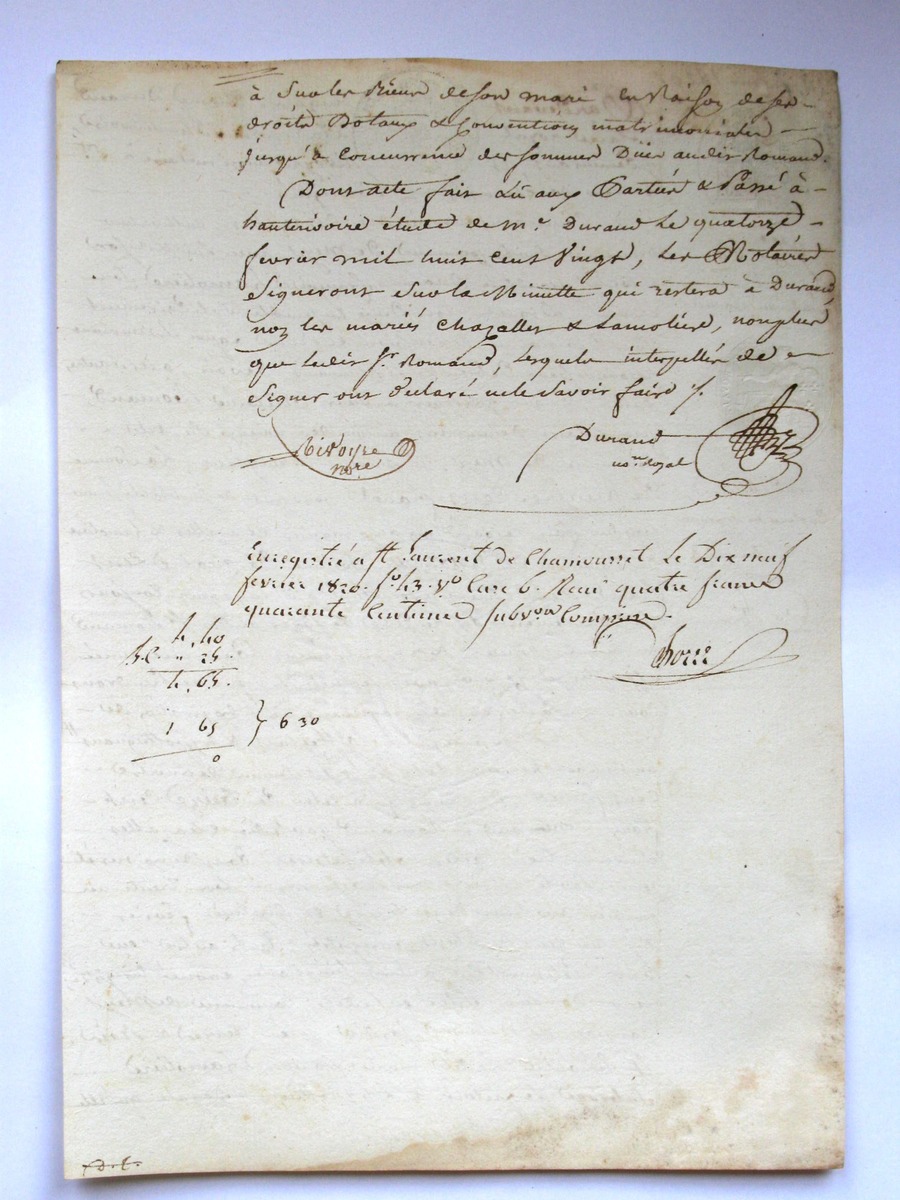 à sur les Biens de son mari en Raison de ses
droits Dotaux & Conventions matrimoniales
jusqu'à concurrence des sommes Dües audit Romand.
Dont acte fait Lû aux Parties & Passé à
hauterivoire étude de me. Durand Le quatorze
fevrier mil huit cent Vingt, Les Notaires
Signeront Sur la Minutte qui restera à Durand,
non les mariés Chazalles & Lamoliere, non plus
que ledit Sr. Romand, lesquels interpellés de
Signer ont déclaré ne le Savoir faire /.
Rivoyre
nore
Durand
nore royal
Enregistré a St Laurent de Chamousset Le Dix neuf
fevrier 1820. fo 43. Vo Case 6. Reçu quatre francs
quarante Centimes subvon Comprise.
4, 40
" 25
4, 65.
1 65 } 6 30
0